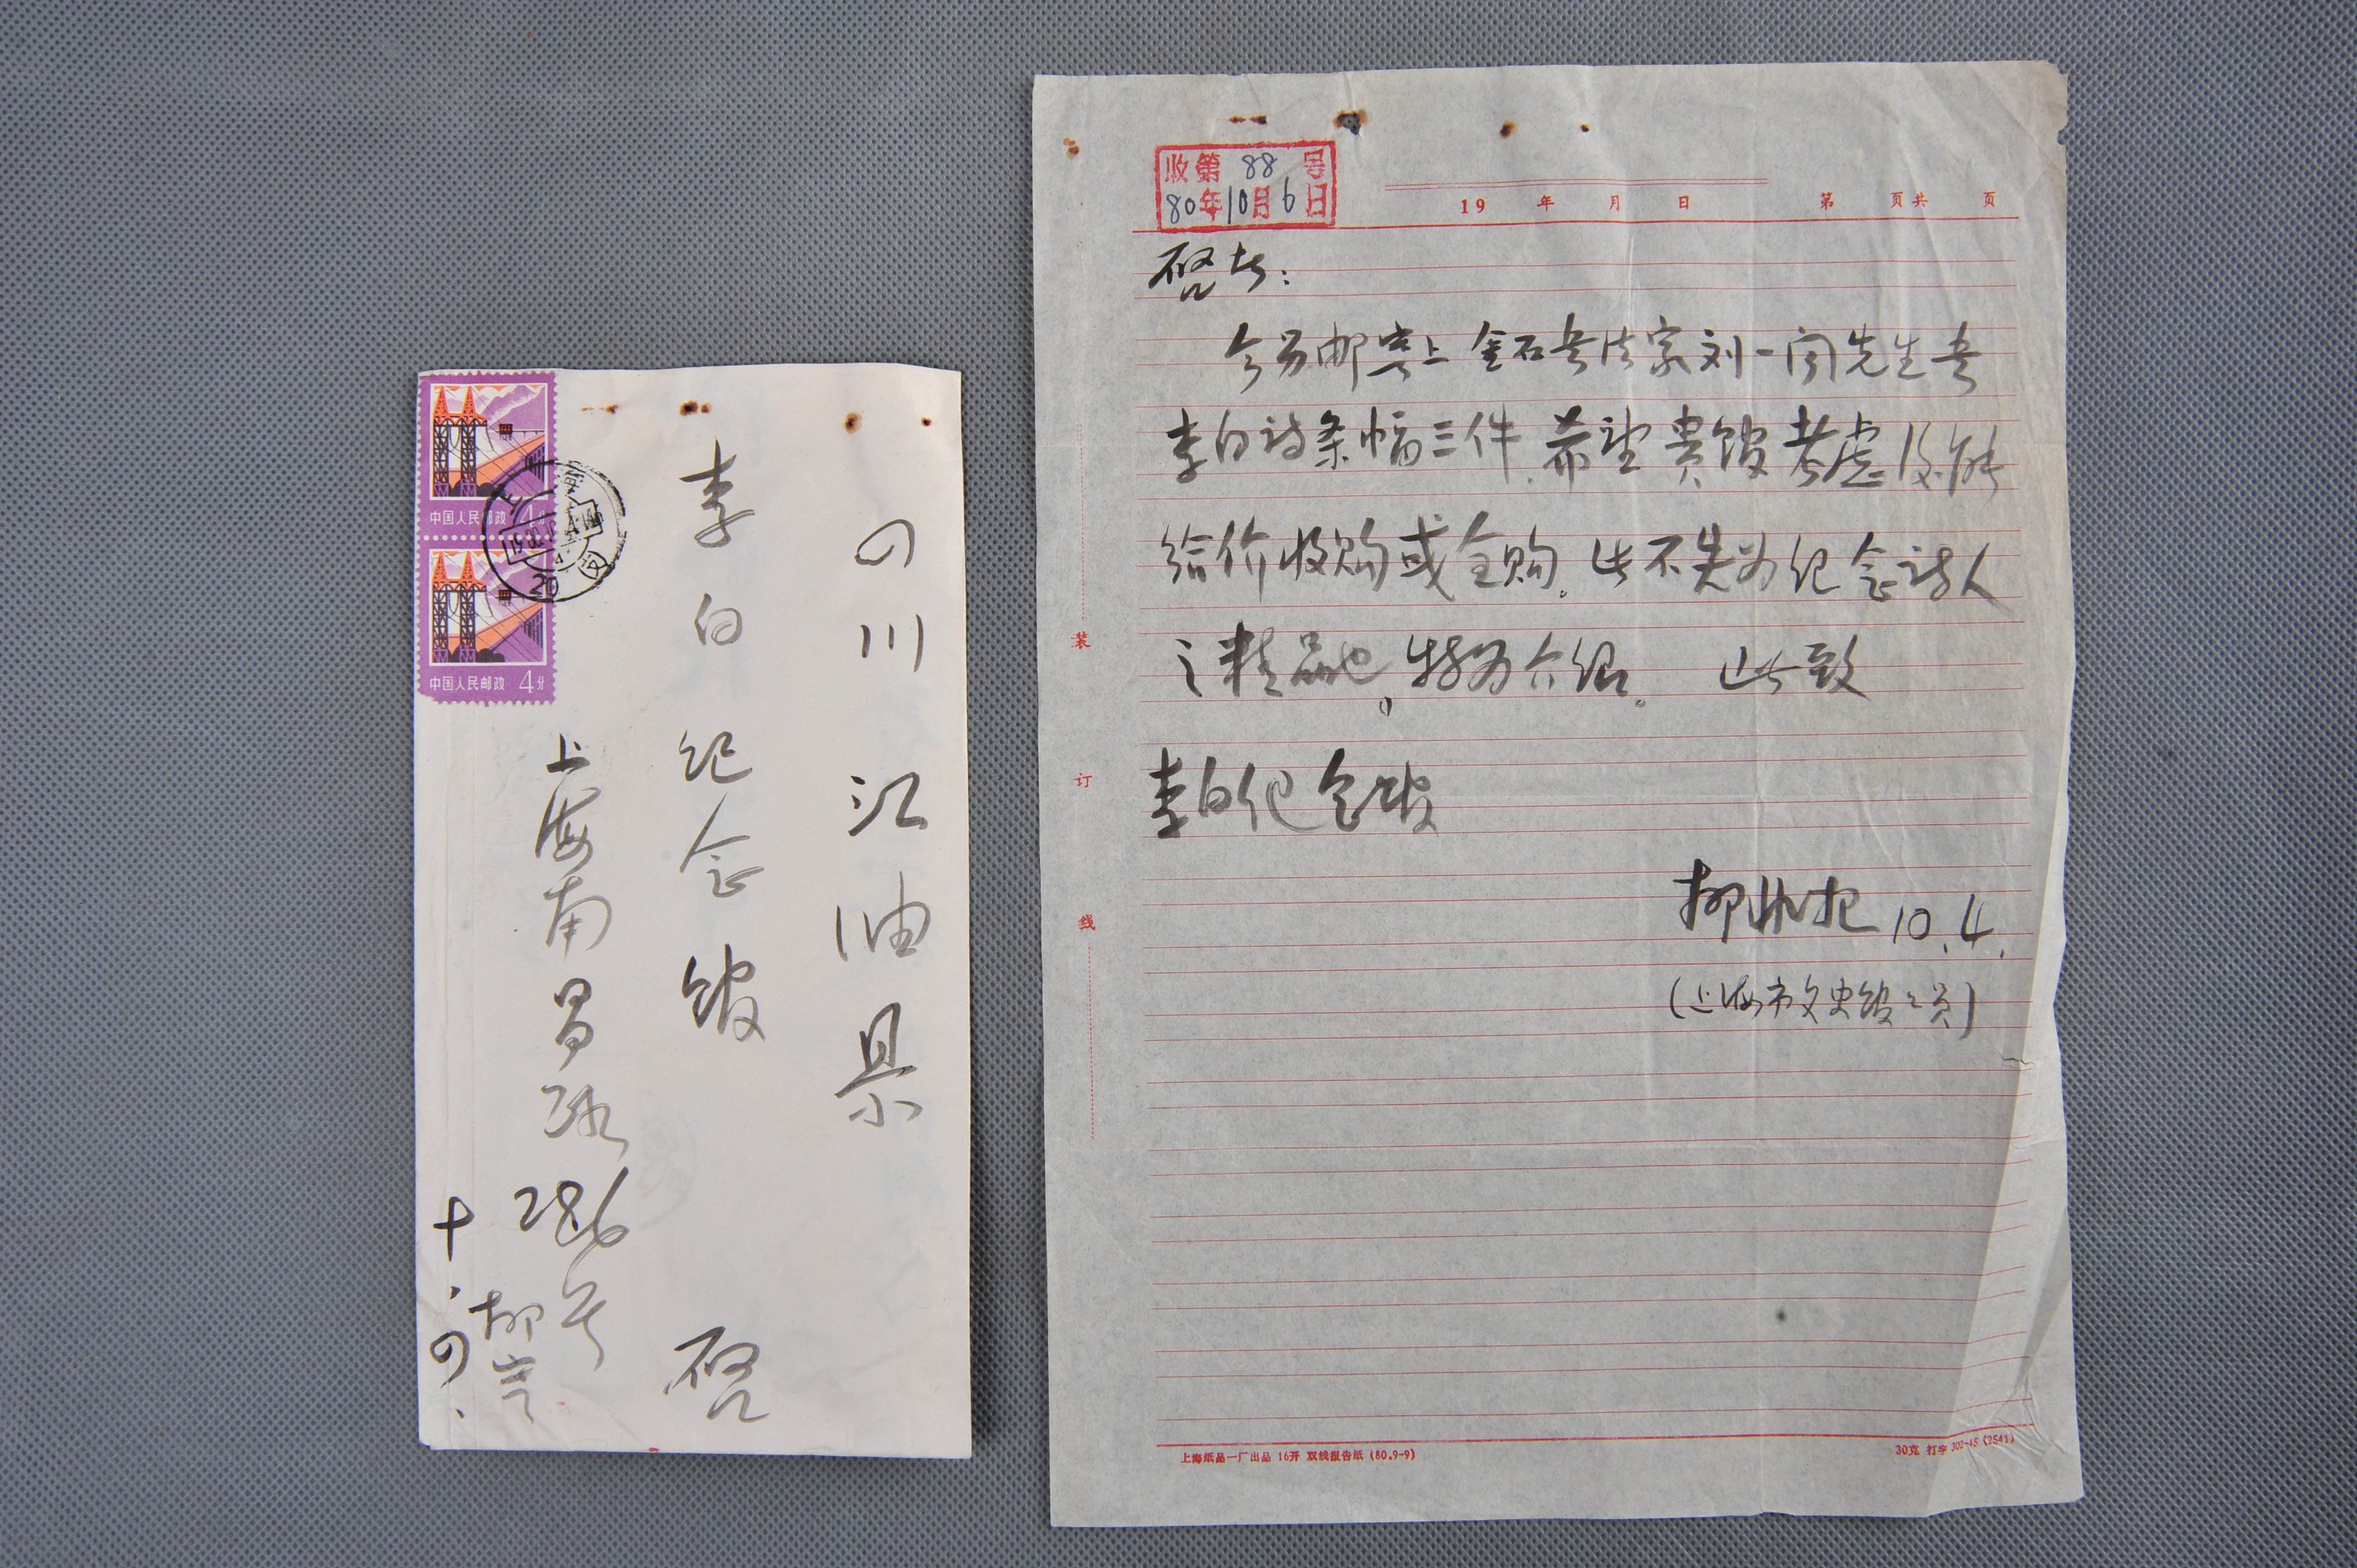 中国人民邮政 4分
中国人民邮政 4分
上海
20
四川江油县
李白纪念馆 启
上海南昌路286号
柳寄
十.四.
收第 88 号
80年10月6日
19 年 月 日 第 页共 页
启者:
今另邮寄上金石书法家刘一闻先生书
李白诗条幅三件,希望贵馆考虑 能
给价收购或全购。此不失为纪念诗人
之精品也,特为介绍。 此致
李白纪念馆
柳非杞 10.4.
(上海市文史馆馆员)
装
订
线
上海纸品一厂出品 16开 双线报告纸 (80.9-9)
30克 打字 302-45 (2541)